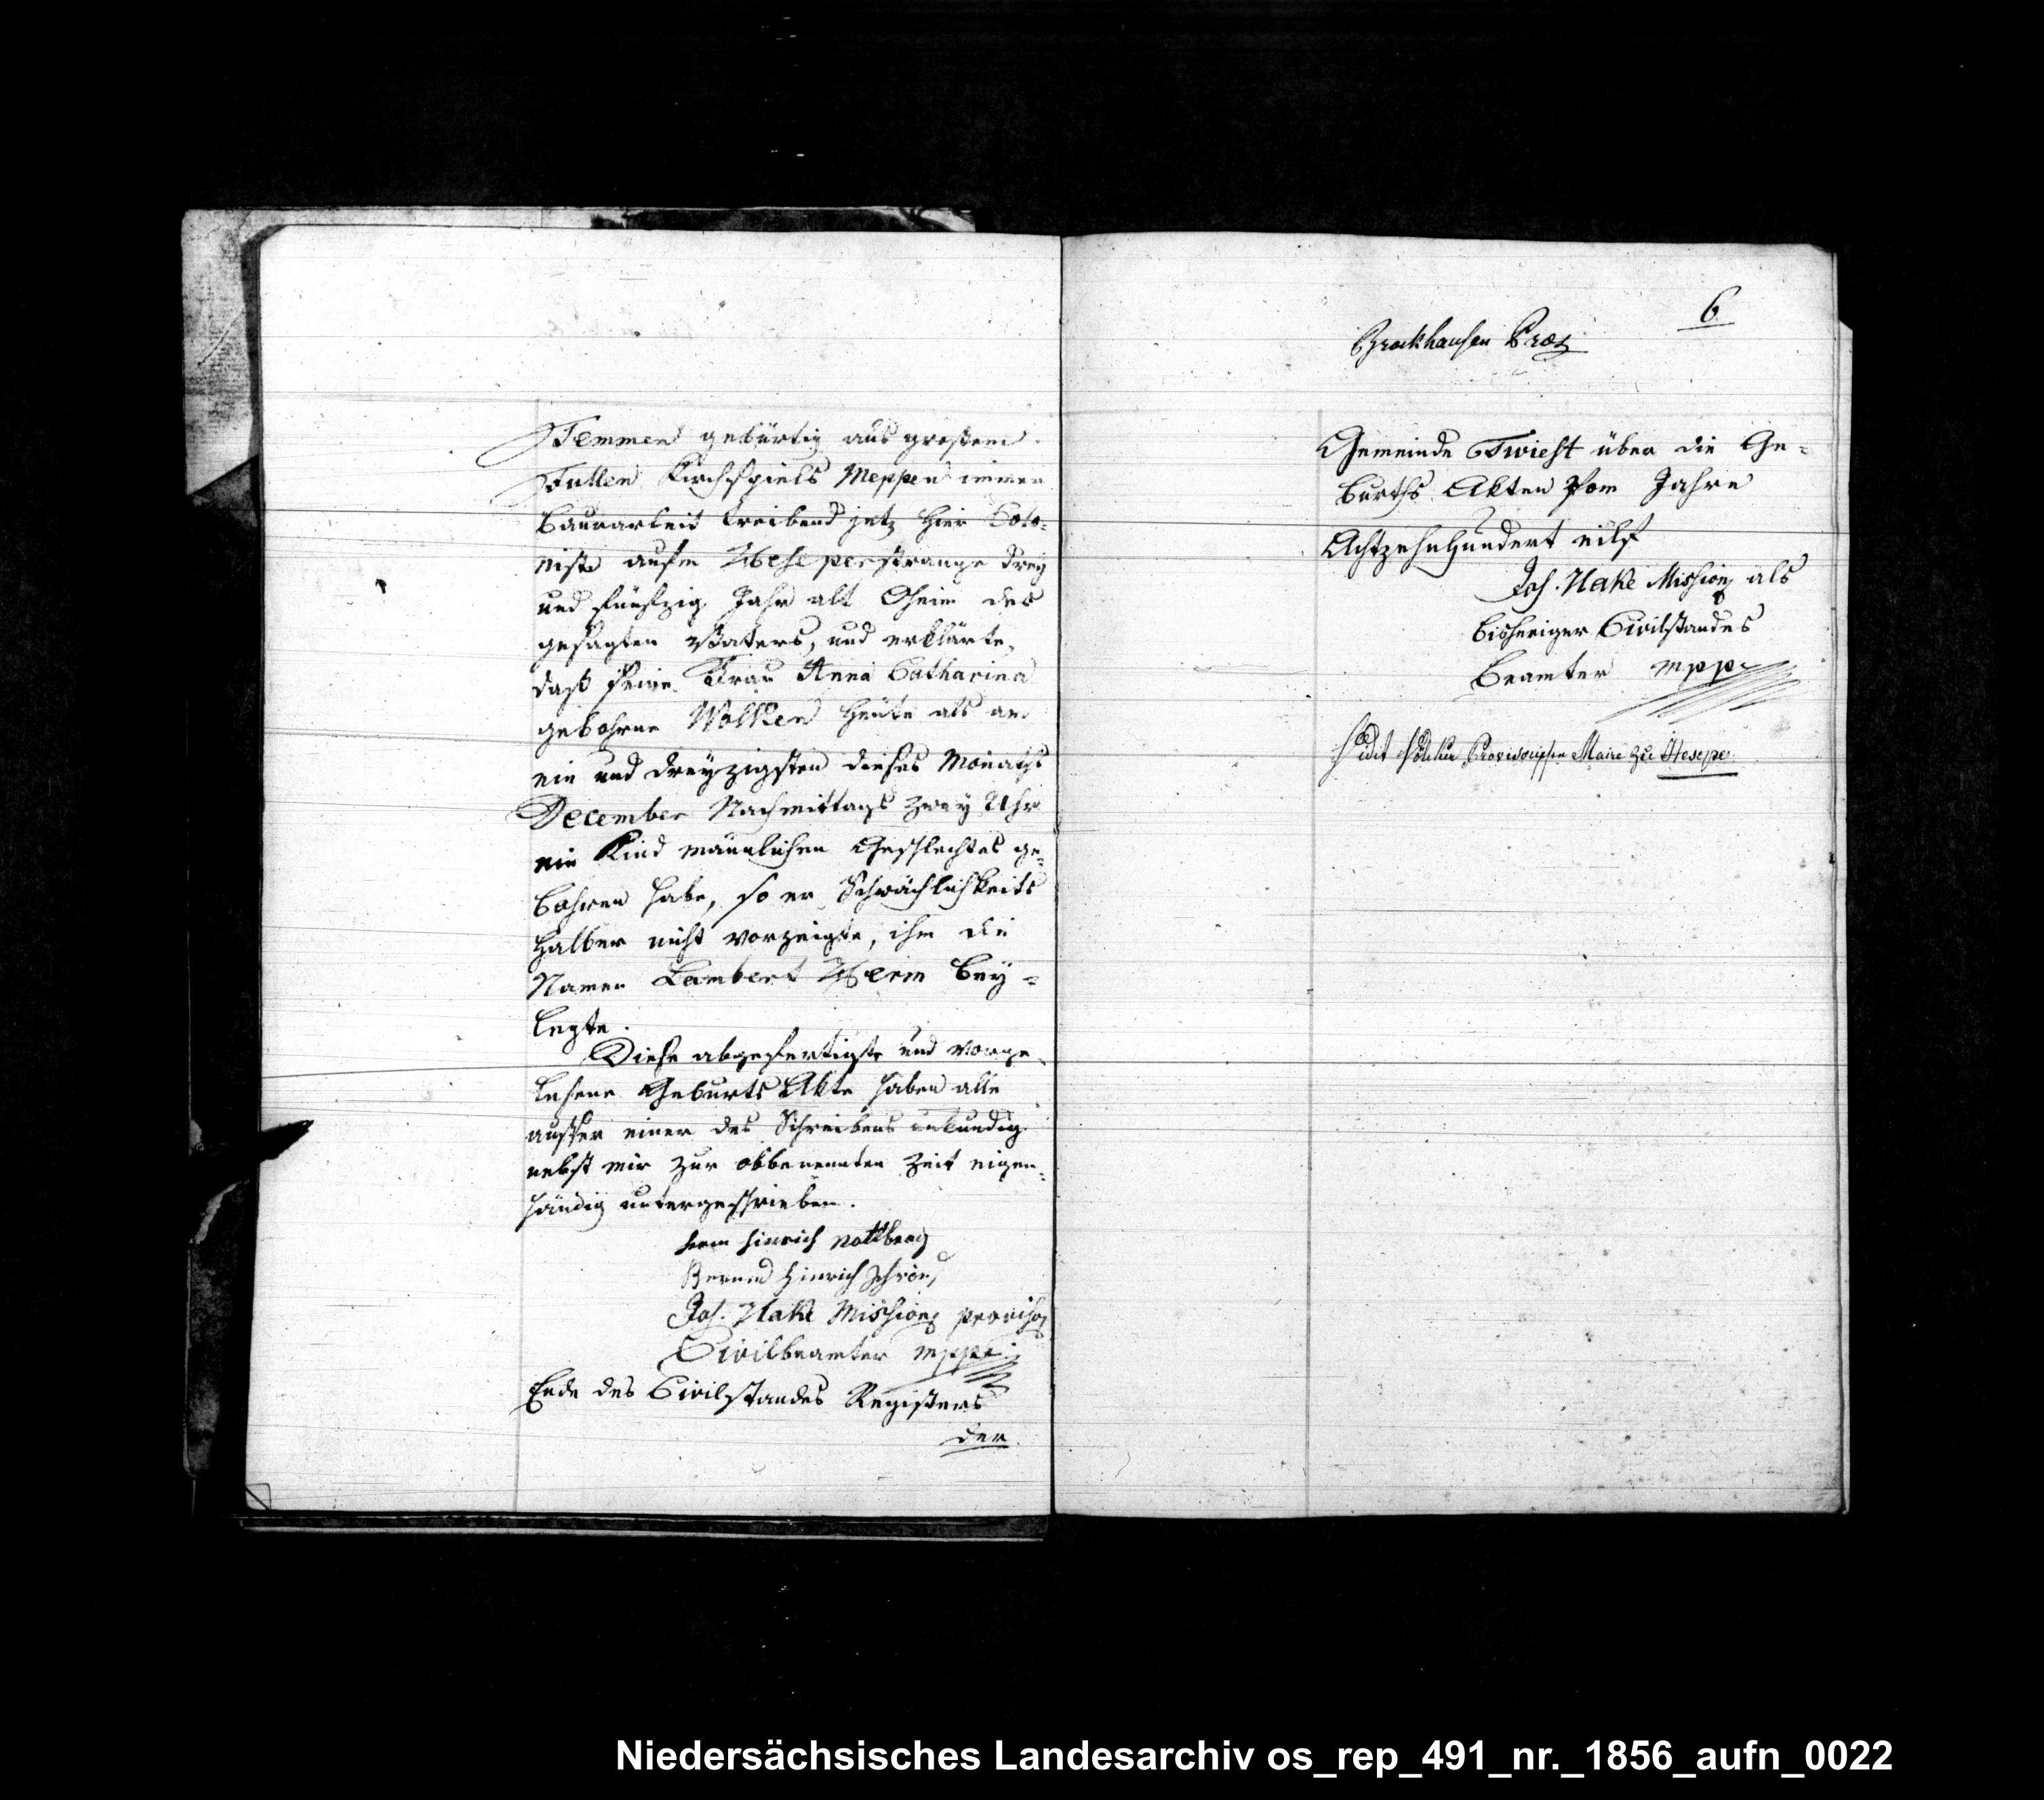 Temmen gebürtig aus großem
Fullen Kirchspiels Meppen immer
Bauerarbeit treibend jetz hier Colo-
niste aufm Heseperstrange drey
und fünfzig Jahr alt Oheim des
gesagten Vaters, und erklärte,
daß seine Frau Anna Catharina
gebohrne Wolken heute als am
ein und dreyzigsten dieses Monaths
December Nachmittags zwey Uhr
ein Kind männlichen Geschlechtes ge-
bohren habe, so er Schwächlichkeits
halber nicht vorzeigte, ihm die
Namen Lambert Herm bey-
legte.
Diese abgefertigte und vorge-
lesene Geburts Akte haben alle
ausser einer des Schreibens unkundig
nebst mir zur obbenennten Zeit eigen-
händig untergeschrieben.
herm hinrich nottberg
Bernd Hinrich Schröer
Joh. Hake Mission provisor
Civilbeamter mppe
Ende des Civilstandes Registers
der
6
Brockhausen
Gemeinde Twist über die Ge-
burths Akten vom Jahre
Achtzehnhundert eilf
Joh. Hake Mission als
bisheriger Civilstandes
Beamter mppe
Provisorischer Maire zu Hesepe
Niedersächsisches Landesarchiv os_rep_491_nr._1856_aufn_0022